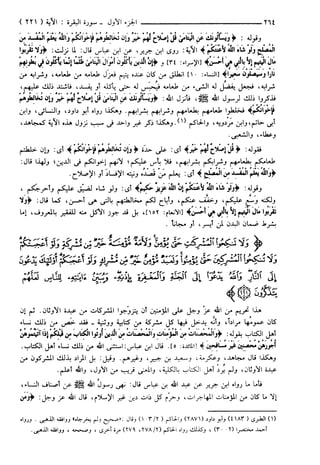 ٢٦٤ الجزء الأول - سورة البقرة : الآية (٢٢١)
وقوله : ﴿وَيَسْأَلُونَكَ عَنِ الْيَتَامَى قُلْ إِصْلَاحٌ لَهُمْ خَيْرٌ وَإِنْ تُخَالِطُوهُمْ فَإِخْوَانُكُمْ وَاللَّهُ يَعْلَمُ الْمُفْسِدَ مِنَ
الْمُصْلِحِ وَلَوْ شَاءَ اللَّهُ لَأَعْنَتَكُمْ﴾ الآية : روى ابن جرير، عن ابن عباس قال: لما نزلت: ﴿وَلَا تَقْرَبُوا
مَالَ الْيَتِيمِ إِلَّا بِالَّتِي هِيَ أَحْسَنُ﴾ [الإسراء: ٣٤] و ﴿إِنَّ الَّذِينَ يَأْكُلُونَ أَمْوَالَ الْيَتَامَى ظُلْمًا إِنَّمَا يَأْكُلُونَ فِي بُطُونِهِمْ
نَارًا وَسَيَصْلَوْنَ سَعِيرًا﴾ [النساء: ١٠] انطلق من كان عنده يتيم فعزل طعامه من طعامه، وشرابه من
شرابه، فجعل يفضل له الشيء من طعامه فيُحبس له حتى يأكله أو يفسد، فاشتد ذلك عليهم،
فذكروا ذلك لرسول الله ﷺ، فأنزل الله: ﴿وَيَسْأَلُونَكَ عَنِ الْيَتَامَى قُلْ إِصْلَاحٌ لَهُمْ خَيْرٌ وَإِنْ تُخَالِطُوهُمْ
فَإِخْوَانُكُمْ﴾ فخلطوا طعامهم بطعامهم وشرابهم بشرابهم. وهكذا رواه أبو داود، والنسائي، وابن
أبي حاتم، وابن مَرْدويه، والحاكم (١). وهكذا ذكر غير واحد في سبب نزول هذه الآية كمجاهد،
وعطاء، والشعبي.
فقوله: ﴿قُلْ إِصْلَاحٌ لَهُمْ خَيْرٌ﴾ أي: على حدة ﴿وَإِنْ تُخَالِطُوهُمْ فَإِخْوَانُكُمْ﴾ أي: وإن خلطتم
طعامكم بطعامهم وشرابكم بشرابهم، فلا بأس عليكم؛ لأنهم إخوانكم في الدين؛ ولهذا قال:
﴿وَاللَّهُ يَعْلَمُ الْمُفْسِدَ مِنَ الْمُصْلِحِ﴾ أي: يعلم مَنْ قَصْدُه ونيته الإفسادَ أو الإصلاح.
وقوله: ﴿وَلَوْ شَاءَ اللَّهُ لَأَعْنَتَكُمْ إِنَّ اللَّهَ عَزِيزٌ حَكِيمٌ﴾ أي: ولو شاء لضيّق عليكم وأحرجكم ،
ولكنه وَسَّع عليكم، وخفَّف عنكم، وأباح لكم مخالطتهم بالتي هي أحسن، كما قال: ﴿وَلَا
تَقْرَبُوا مَالَ الْيَتِيمِ إِلَّا بِالَّتِي هِيَ أَحْسَنُ﴾ [الأنعام: ١٥٢]، بل قد جوز الأكل منه للفقير بالمعروف، إما
بشرط ضمان البدل لمن أيسر، أو مجاناً .
﴿وَلَا تَنكِحُوا الْمُشْرِكَاتِ حَتَّى يُؤْمِنَّ وَلَأَمَةٌ مُؤْمِنَةٌ خَيْرٌ مِنْ مُشْرِكَةٍ وَلَوْ أَعْجَبَتْكُمْ
وَلَا تُنكِحُوا الْمُشْرِكِينَ حَتَّى يُؤْمِنُوا وَلَعَبْدٌ مُؤْمِنٌ خَيْرٌ مِنْ مُشْرِكٍ وَلَوْ أَعْجَبَكُمْ أُولَئِكَ يَدْعُونَ
إِلَى النَّارِ وَاللَّهُ يَدْعُو إِلَى الْجَنَّةِ وَالْمَغْفِرَةِ بِإِذْنِهِ وَيُبَيِّنُ آيَاتِهِ لِلنَّاسِ لَعَلَّهُمْ
يَتَذَكَّرُونَ﴾
هذا تحريم من الله عزّ وجل على المؤمنين أن يتزوّجوا المشركات من عبدة الأوثان. ثم إن
كان عمومُها مراداً، وأنَّه يدخل فيها كل مشركة من كتابية ووثنية - فقد خَص من ذلك نساء
أهل الكتاب بقوله: ﴿وَالْمُحْصَنَاتُ مِنَ الْمُؤْمِنَاتِ وَالْمُحْصَنَاتُ مِنَ الَّذِينَ أُوتُوا الْكِتَابَ مِنْ قَبْلِكُمْ إِذَا آتَيْتُمُوهُنَّ
أُجُورَهُنَّ مُحْصِنِينَ غَيْرَ مُسَافِحِينَ﴾ [المائدة: ٥]. قال ابن عباس: استثنى الله من ذلك نساء أهل الكتاب.
وهكذا قال مجاهد، وعكرمة، وسعيد بن جبير، وغيرهم. وقيل: بل المراد بذلك المشركون من
عبدة الأوثان، ولم يُرِدْ أهل الكتاب بالكلية، والمعنى قريب من الأول، والله أعلم.
فأما ما رواه ابن جرير عن عبد الله بن عباس قال: نهى رسولُ الله ﷺ عن أصناف النساء،
إلا ما كان من المؤمنات المهاجرات، وحرّم كل ذات دين غير الإسلام، قال الله عز وجل: ﴿وَمَن
(١) الطبري (٤١٨٣) وأبو داود (٢٨٧١) والحاكم (١٠٣/٢) وقال: «صحيح ولم يخرجاه» ووافقه الذهبي. ورواه
أحمد مختصرا (٣٠٠٢)، وكذلك رواه الحاكم (٢٧٨/٢، ٢٧٩) مرة أخرى، وصححه ، ووافقه الذهبي.